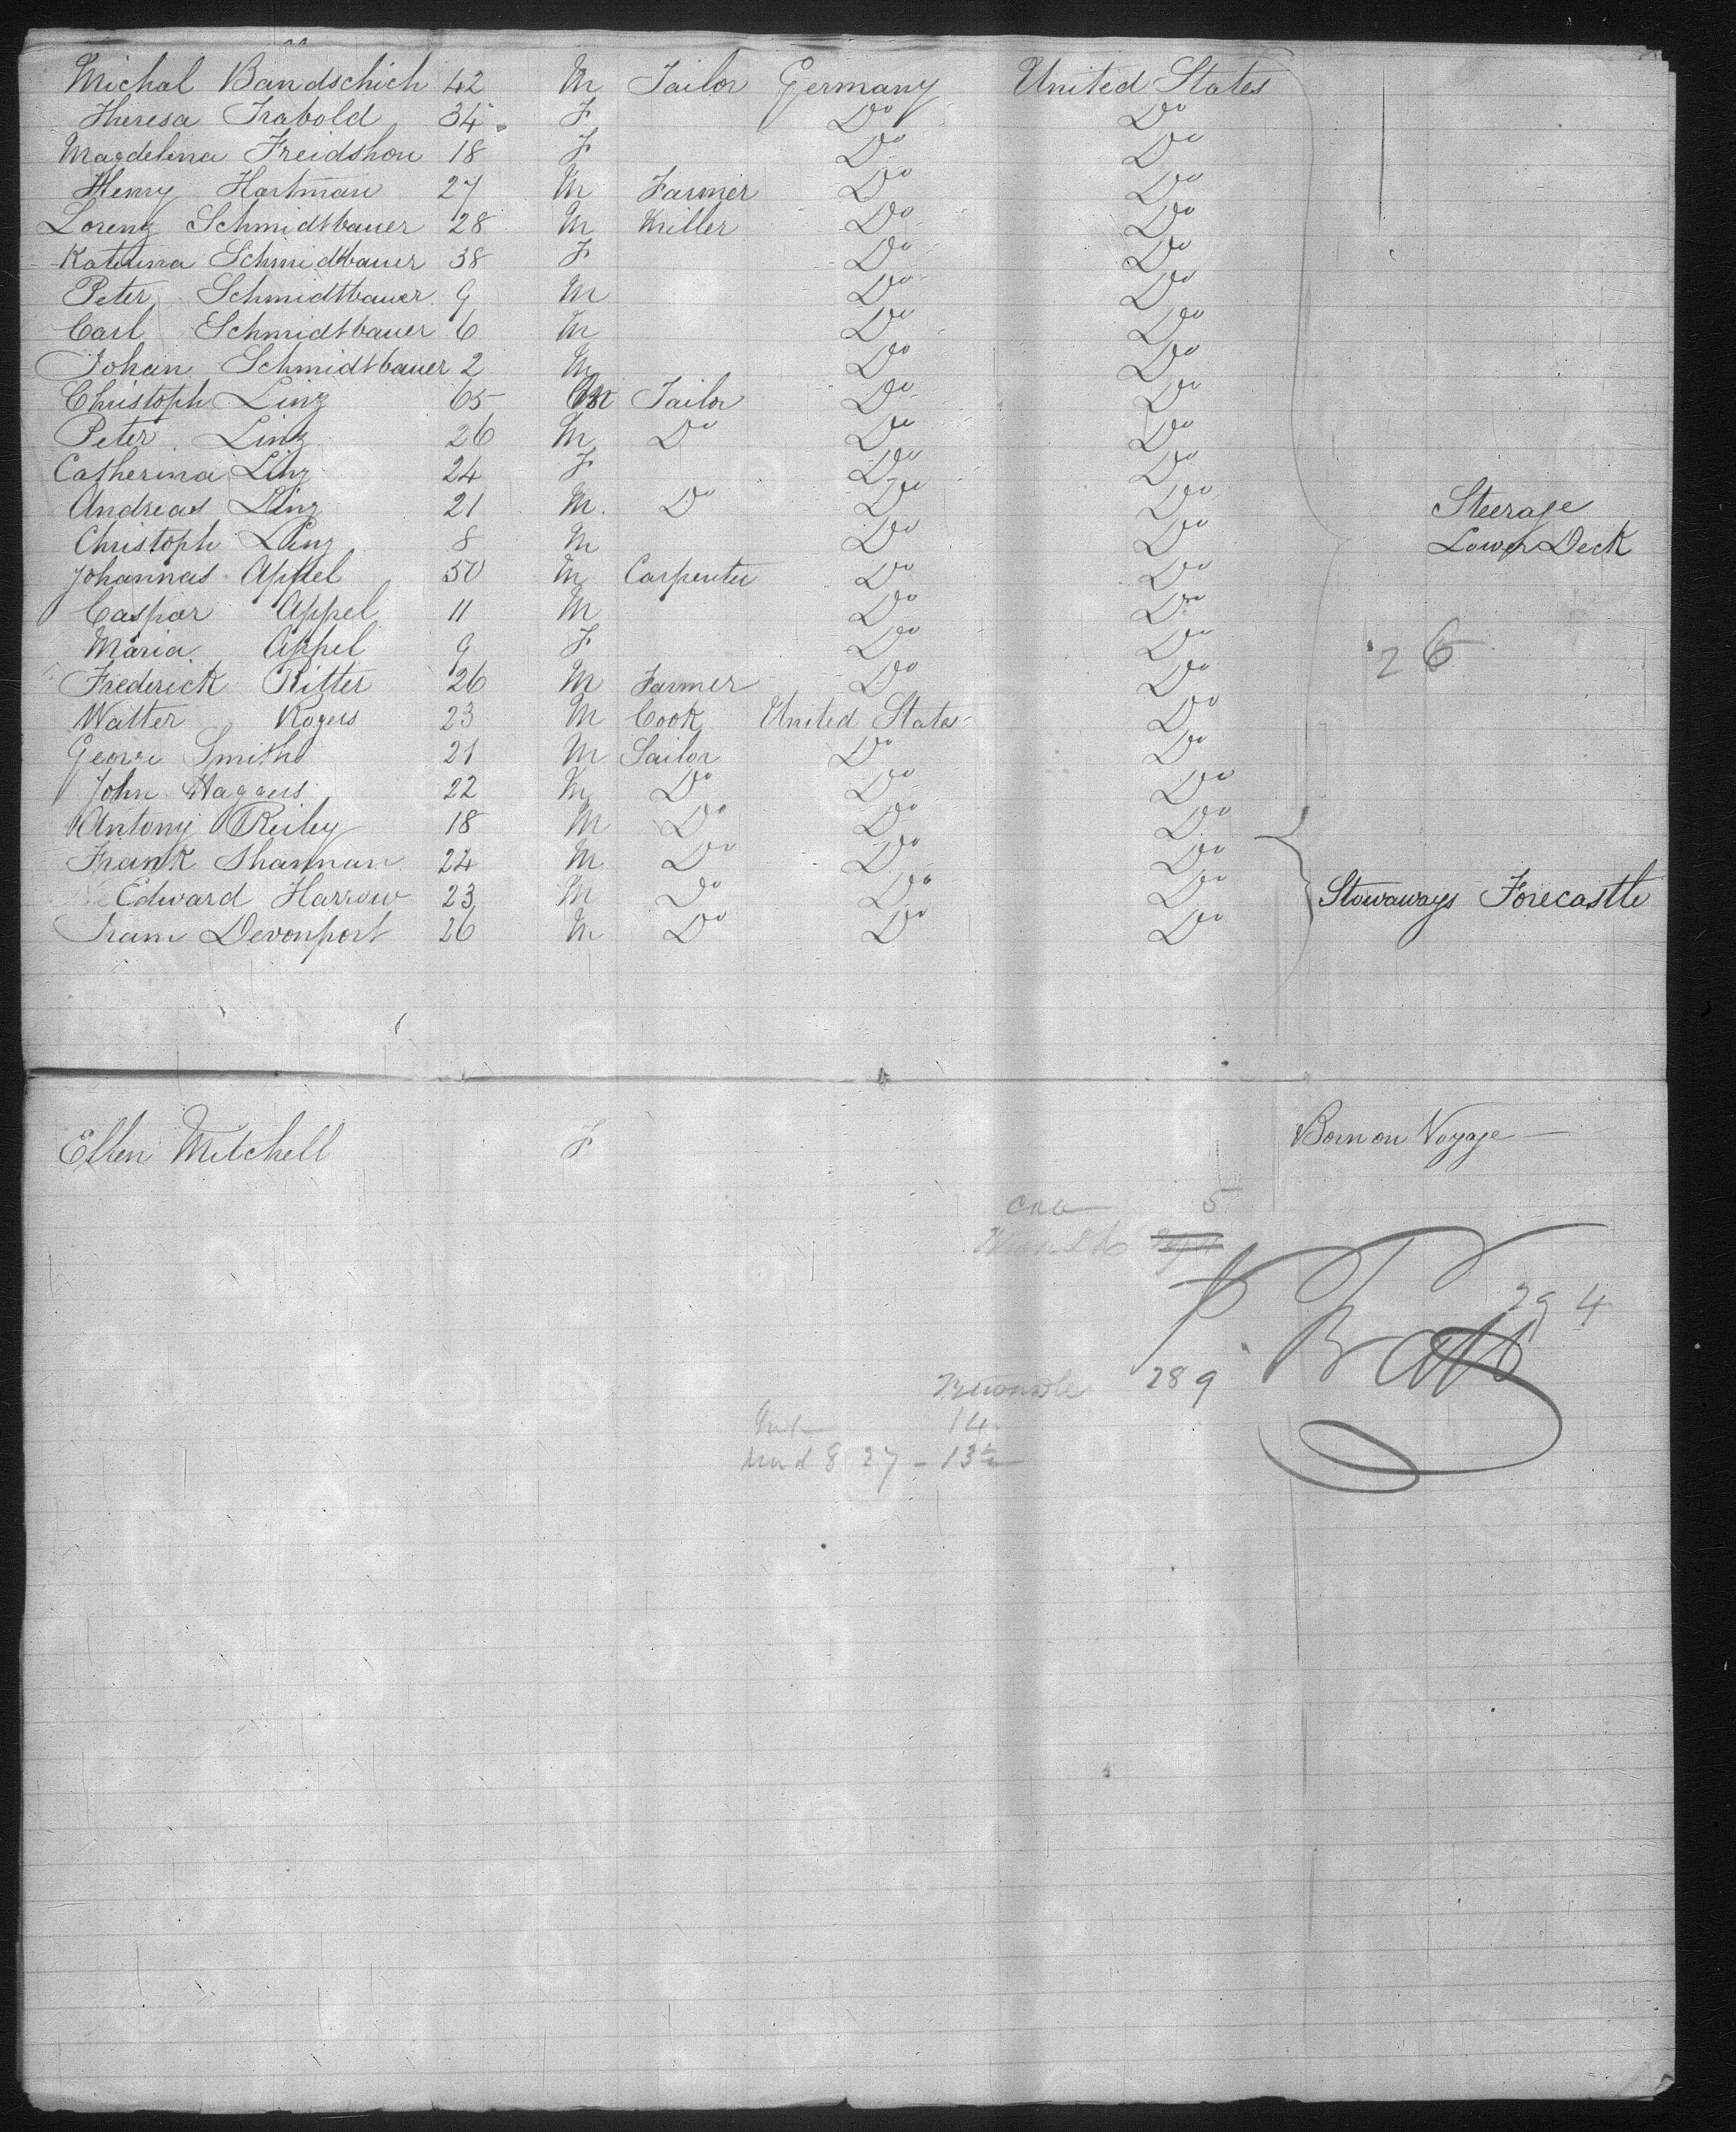 Michal Bandschich 42 M Tailor Germany United States
Theresa Trabold 34 F Do Do
Magdelena Freidshon 18 F Do Do
Henry Hartman 27 M Farmer Do Do
Lorenz Schmidtbauer 28 M Miller Do Do
Katerina Schmidtbauer 38 F Do Do
Peter Schmidtbauer 9 M Do Do
Carl Schmidtbauer 6 M Do Do
Johan Schmidtbauer 2 M Do Do
Christoph Linz 65 M Tailor Do Do
Peter Linz 26 M Do Do Do
Catherina Linz 24 F Do Do
Andreas Linz 21 M. Do Do Do Steerage
Christoph Linz 8 M Do Do Lower Deck
Johannas Appel 50 M Carpenter Do Do
Caspar Appel 11 M Do Do
Maria Appel 9 F Do Do 26
Frederick Ritter 26 M Farmer Do Do
Walter Rogers 23 M Cook United States Do
George Smith 21 M Sailor Do Do
John Haggers 22 M Do Do Do
Antony Reiley 18 M Do Do Do
Frank Shannan 24 M Do Do Do
Edward Harrow 23 M Do Do Do Stowaways Forecastle
Devonport 26 M Do Do Do
Ellen Mitchell F Born on Voyage
5
294
289
14
27 - 13